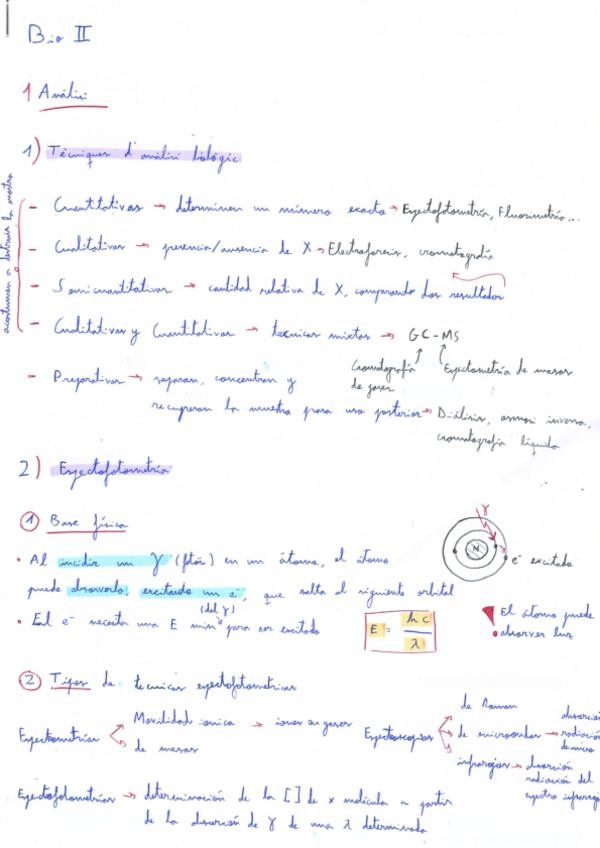 Bio II
1 Anàlisi
1) Tècniques d'anàlisi biològic
acostumen a destruir la mostra
- Cuantitativas → determinen un número exacto → Espectofotometría, Fluorimetría...
- Cualitativas → presencia/ausencia de X → Electroforesis, cromatografía
- Semicuantitativas → cantidad relativa de X, comparando dos resultados
- Cualitativas y Cuantitativas → tecnicas mixtas → GC-MS
Cromatografía de gases
Espectometría de masas
- Preparativas → separan, concentran y
recuperan la muestra para uso posterior → Diálisis, osmosi inversa,
cromatografia líquida
2) Espectofotometría
1 Base física
• Al incidir un γ (fotón) en un átomo, el átomo
puede absorverlo, excitando un e⁻, que salta al siguiente orbital
(del γ)
• El e⁻ necesita una E min para ser excitado
E = hc/λ
N
γ
e⁻ excitado
El átomo puede
absorver luz
2 Tipos de tecnicas espectofotometricas
Espectometrías
Movilidad ionica → iones en gases
de masas
Espectoscopias
de Raman
de microondas →
radiación
infrarojas → absorción
radiación del
espectro infrarojo
Espectofotometrías → determinación de la [ ] de x molécula a partir
de la absorción de γ de una λ determinada